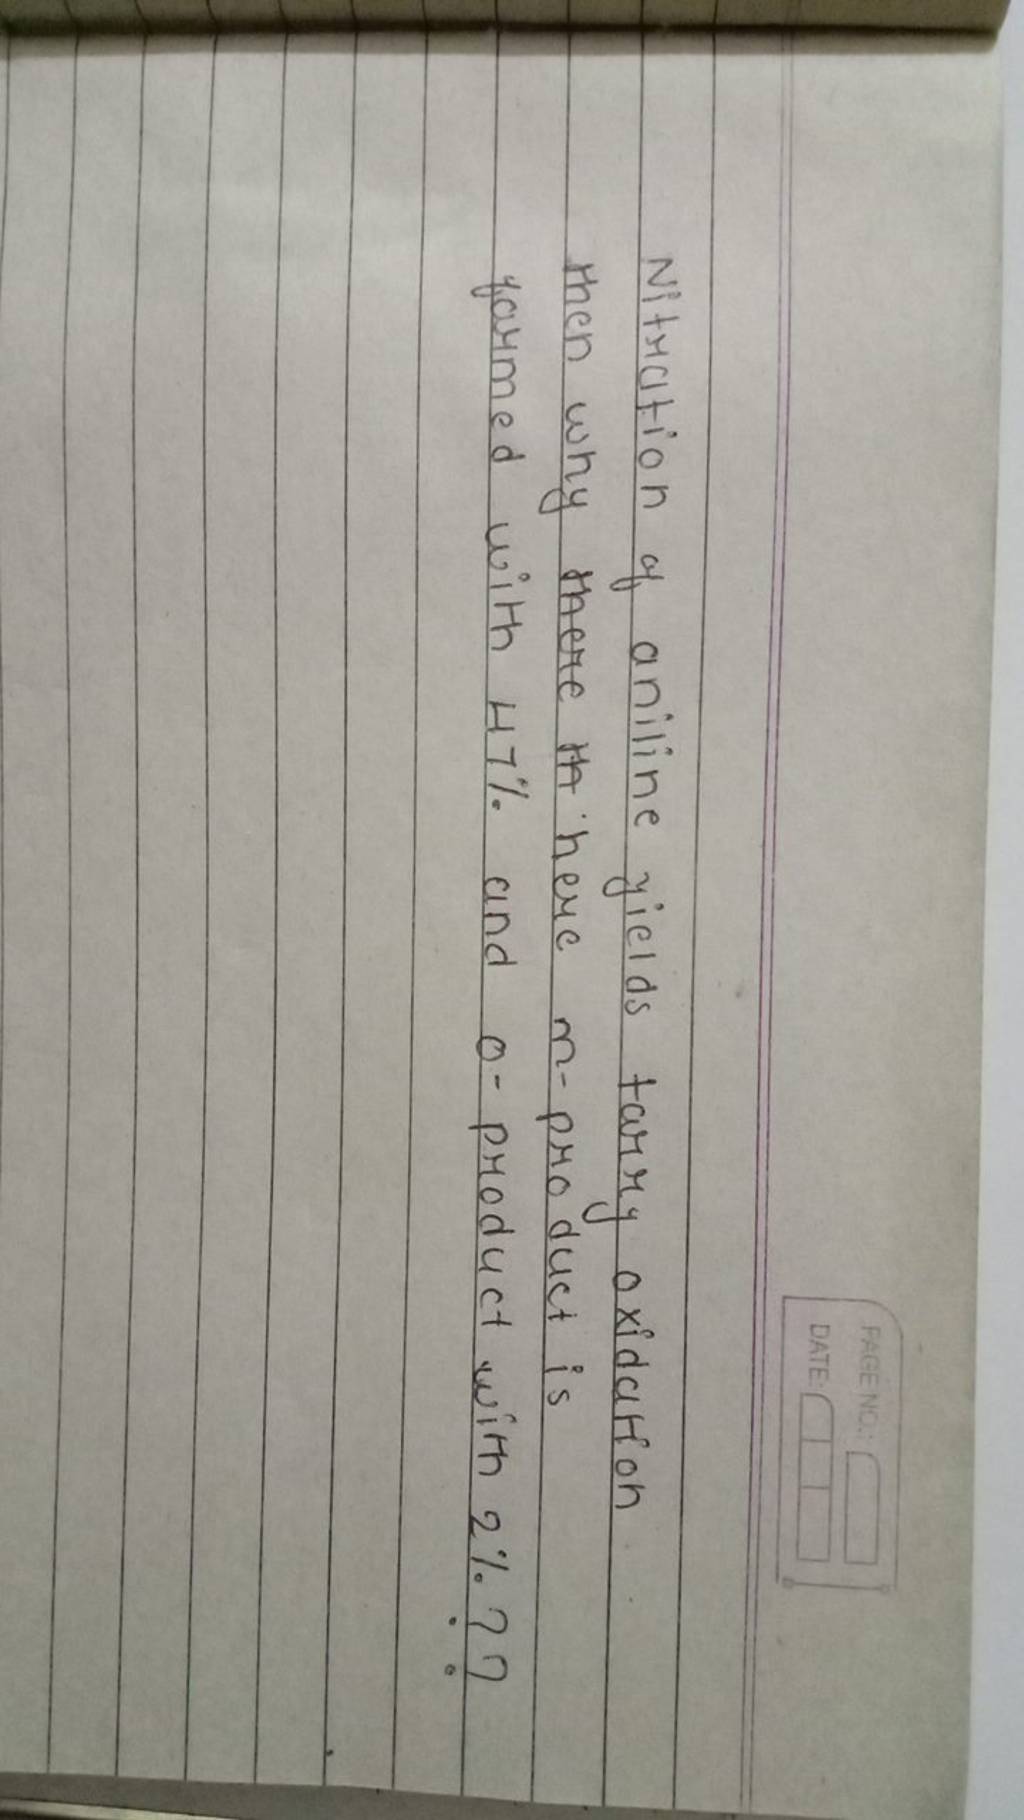 PAGE NO.:
DATE:
Nitration of aniline yields tarry oxidation
then why there th here m-product is
formed with 47% and o-product with 2%??